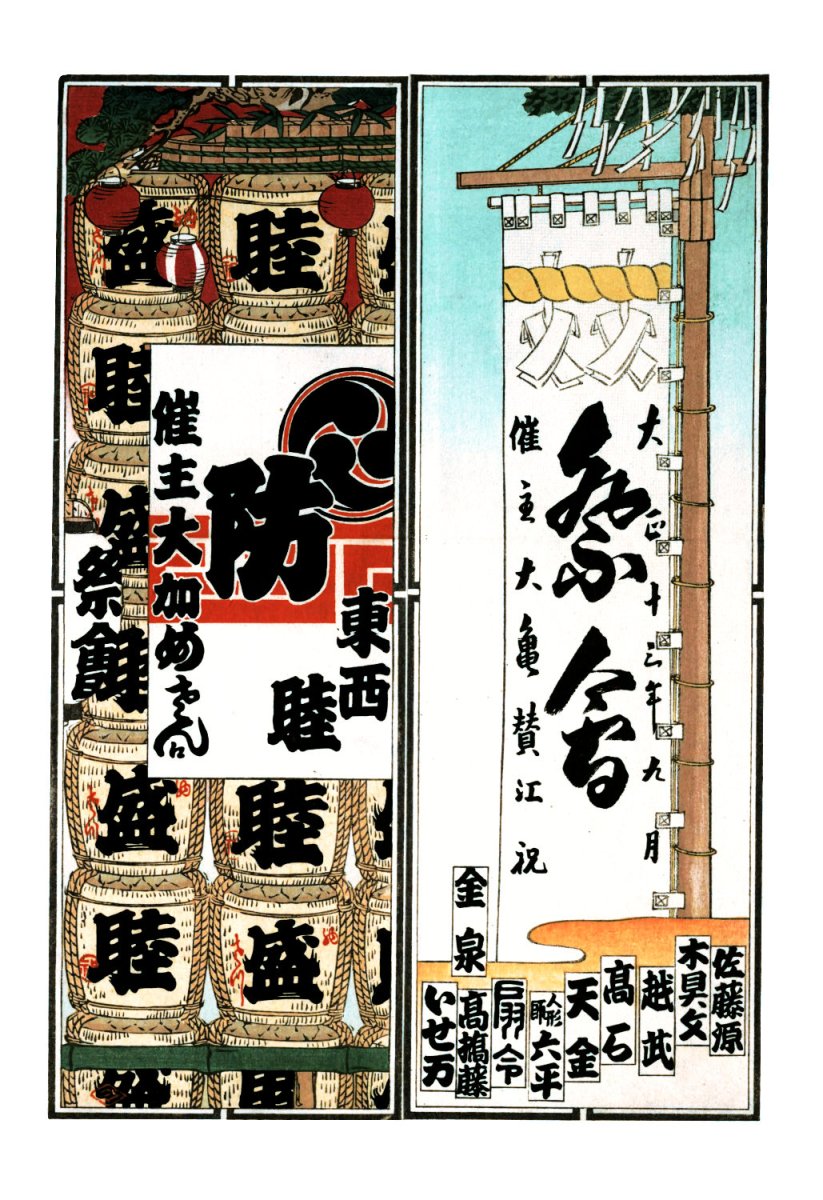 大正十三年九月
祭會
催主大亀賛江祝
佐藤源
木具文
越武
高石
天金
人形師
六平
扇令
高橋藤
金泉
いせ万
睦
盛
睦
防
東西
睦
催主大加め
祭
睦
盛
睦
盛
睦